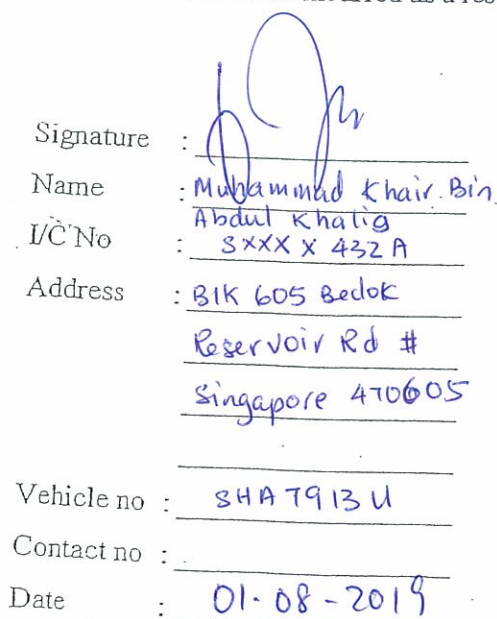 incurred as a res
Signature :
Name : Muhammad Khair Bin
Abdul Khalig
I/C No : SXXX X 432 A
Address : Blk 605 Bedok
Reservoir Rd #
Singapore 470605
Vehicle no : SHA 7913 U
Contact no :
Date : 01-08-2019